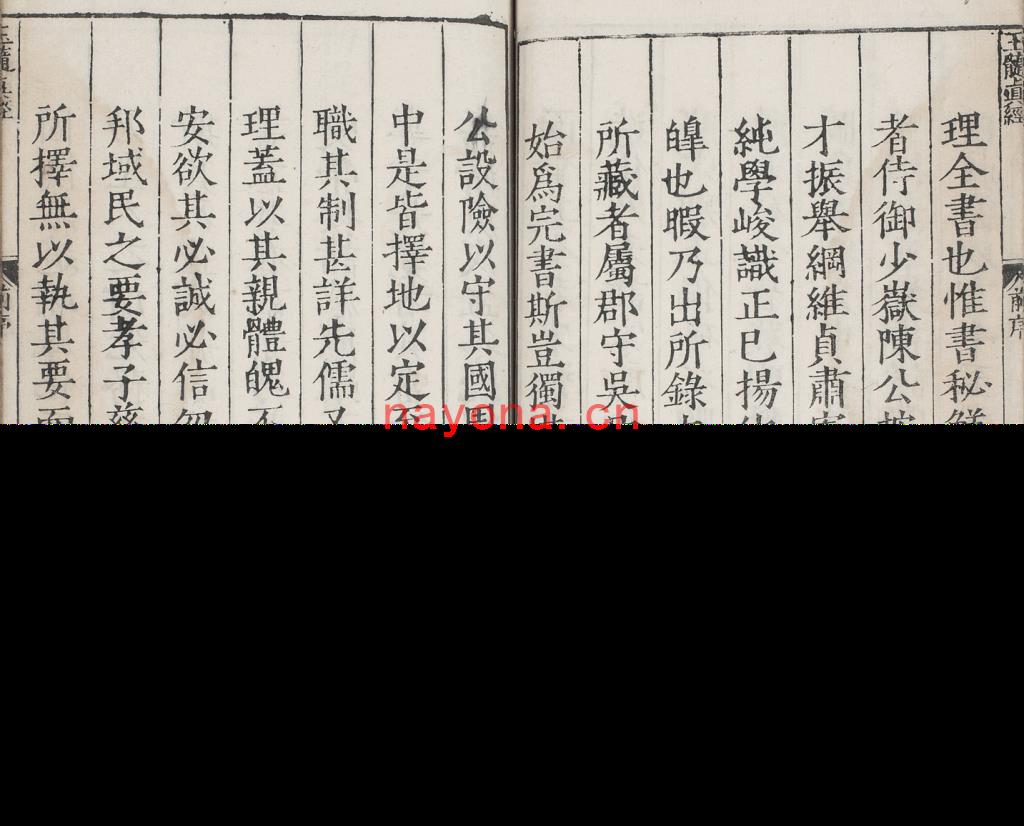 玉髓真經
前序
理全書也惟書秘鮮
者侍御少嶽陳公按
才振舉綱維貞肅
純學峻識正巳揚
皡也暇乃出所錄
所藏者屬郡守吳
始爲完書斯豈獨
公設險以守其國周
中是皆擇地以定
職其制甚詳先儒又
理蓋以其親體魄
安欲其必誠必信
邦域民之要孝子慈
所擇無以執其要而
玉髓真經
前序
nayona.cn